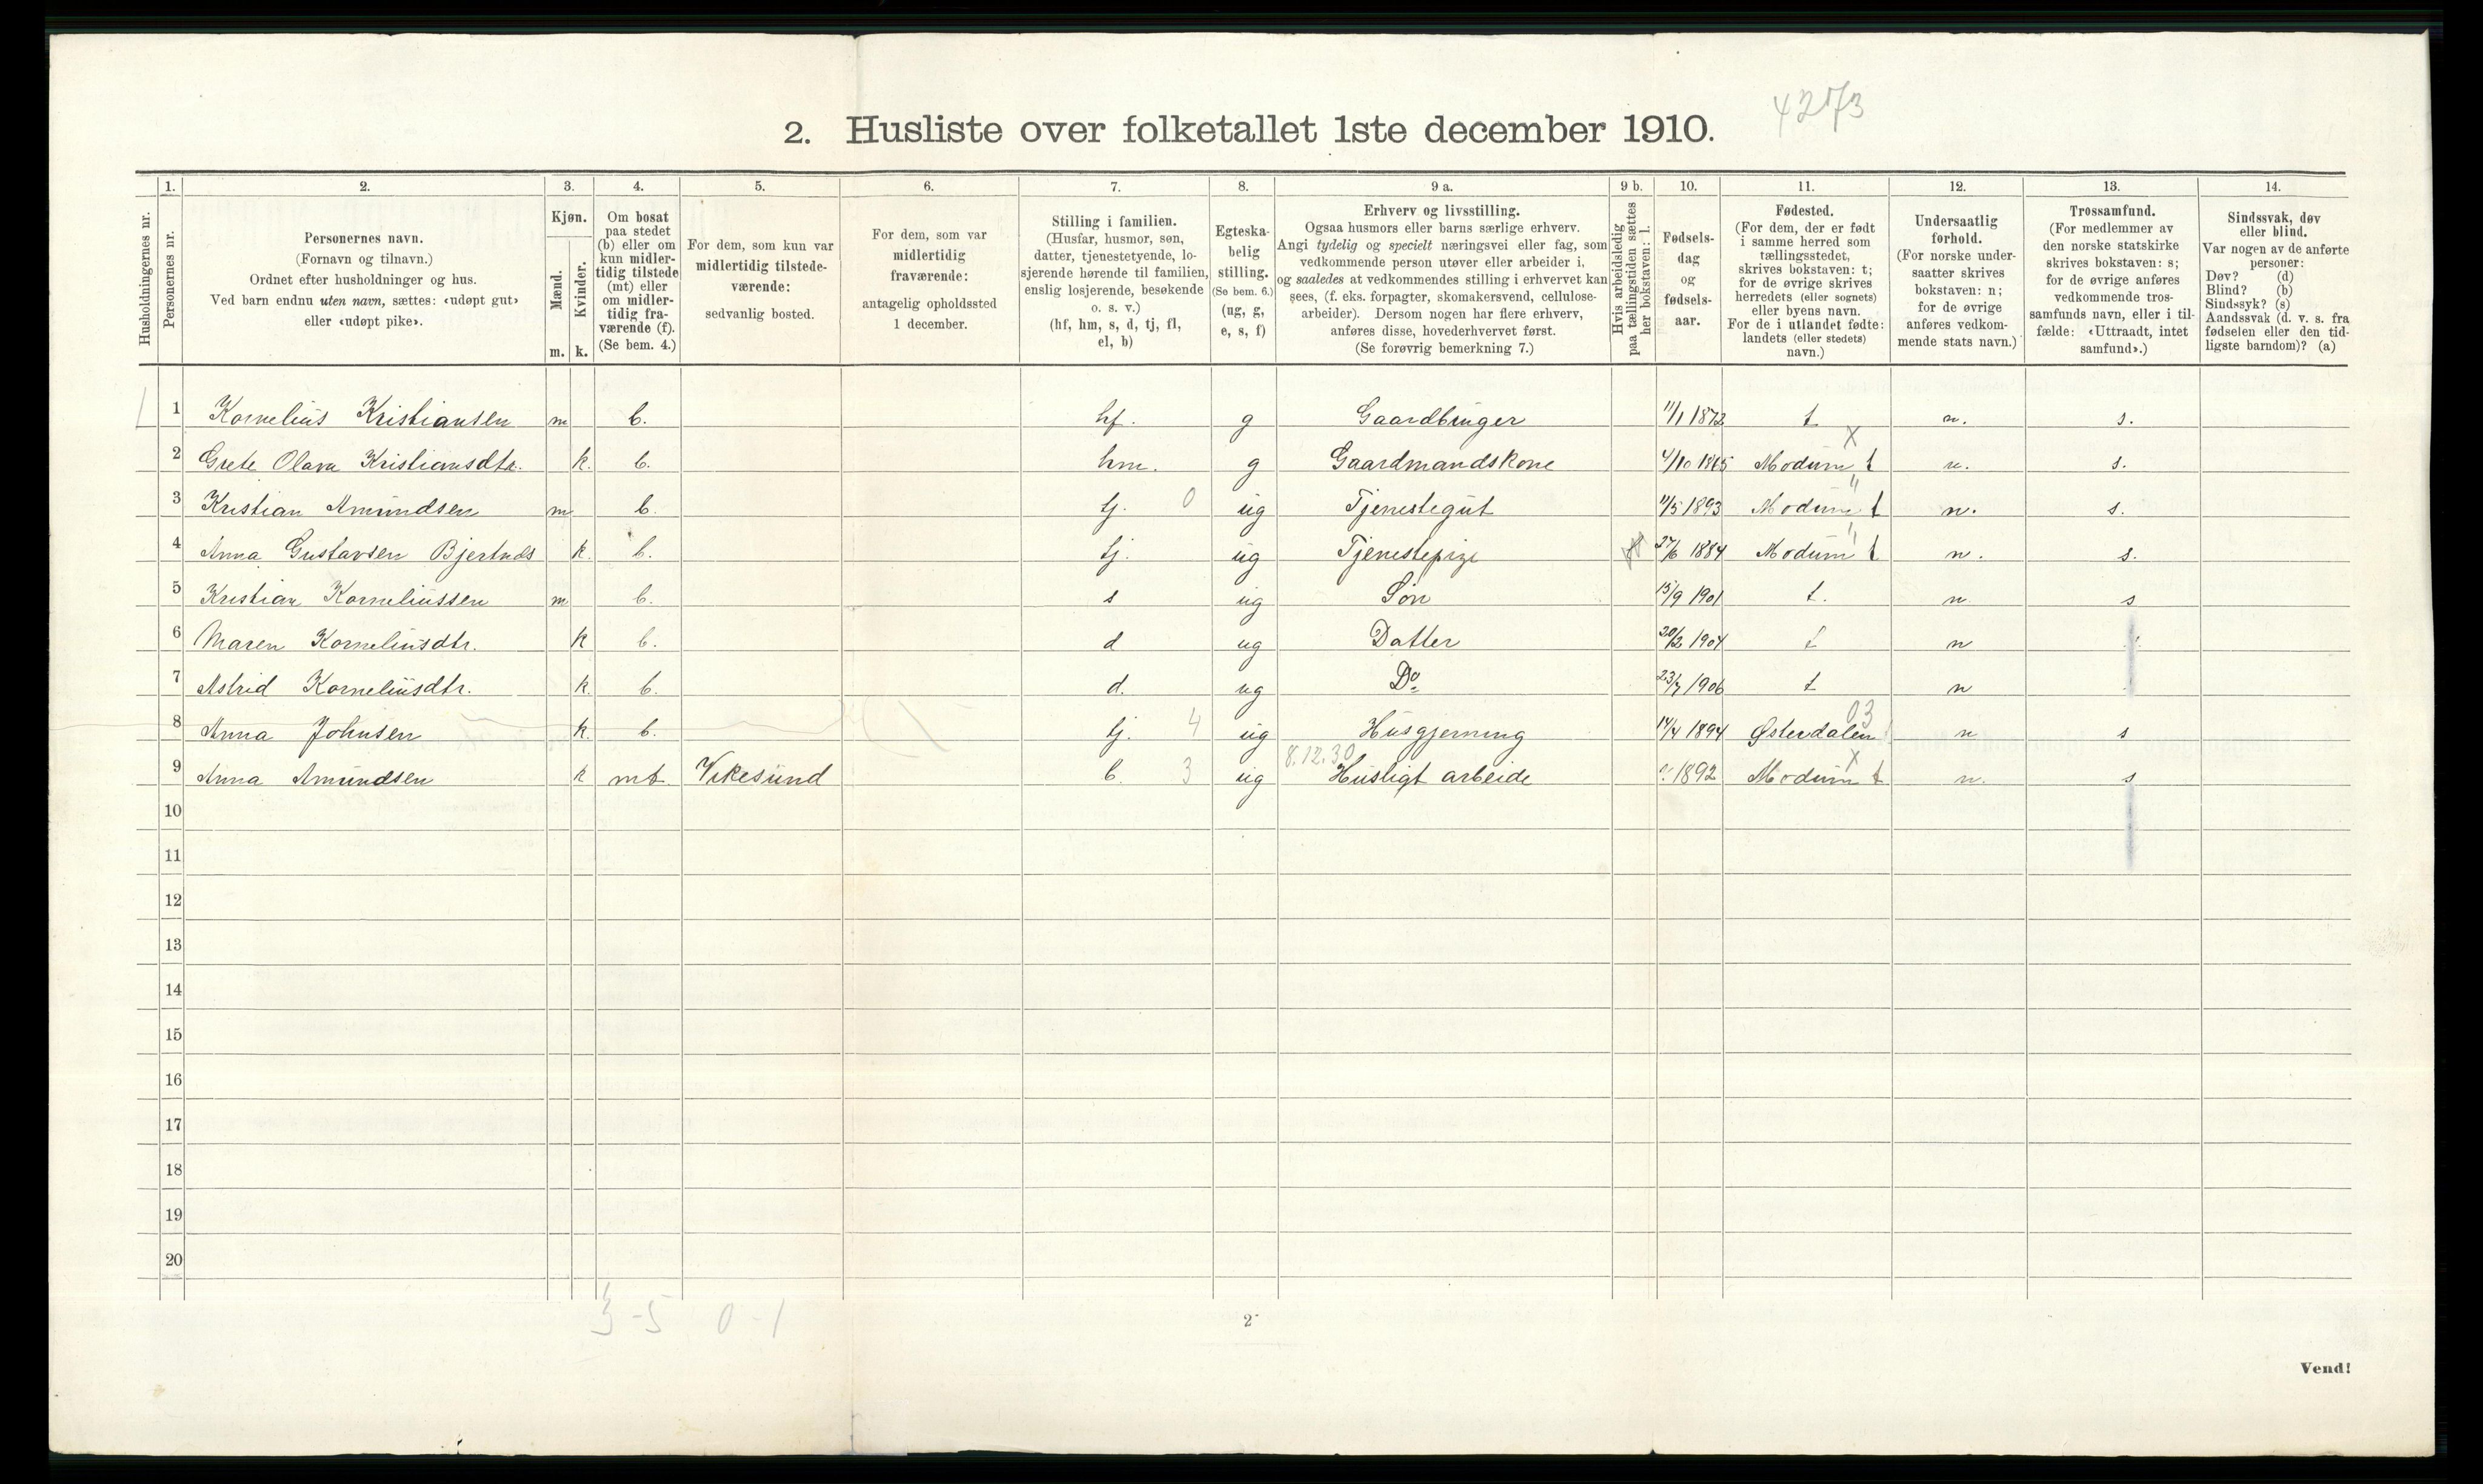 4273
2. Husliste over folketallet 1ste december 1910.
Husholdningernes nr.
1.
Personernes nr.
2.
Personernes navn.
(Fornavn og tilnavn.)
Ordnet efter husholdninger og hus.
Ved barn endnu uten navn, sættes: «udøpt gut»
eller «udøpt pike».
3.
Kjøn.
Mænd.
m.
Kvinder.
k.
4.
Om bosat
paa stedet
(b) eller om
kun midler-
tidig tilstede
(mt) eller
om midler-
tidig fra-
værende (f).
(Se bem. 4.)
5.
For dem, som kun var
midlertidig tilstede-
værende:
sedvanlig bosted.
6.
For dem, som var
midlertidig
fraværende:
antagelig opholdssted
1 december.
7.
Stilling i familien.
(Husfar, husmor, søn,
datter, tjenestetyende, lo-
sjerende hørende til familien,
enslig losjerende, besøkende
o. s. v.)
(hf, hm, s, d, tj, fl,
el, b)
8.
Egteska-
belig
stilling.
(Se bem. 6.)
(ug, g,
e, s, f)
9 a.
Erhverv og livsstilling.
Ogsaa husmors eller barns særlige erhverv.
Angi tydelig og specielt næringsvei eller fag, som
vedkommende person utøver eller arbeider i,
og saaledes at vedkommendes stilling i erhvervet kan
sees, (f. eks. forpagter, skomakersvend, cellulose-
arbeider). Dersom nogen har flere erhverv,
anføres disse, hovederhvervet først.
(Se forøvrig bemerkning 7.)
9 b.
Hvis arbeidsledig
paa tællingstiden sættes
her bokstaven: l.
10.
Fødsels-
dag
og
fødsels-
aar.
11.
Fødested.
(For dem, der er født
i samme herred som
tællingsstedet,
skrives bokstaven: t;
for de øvrige skrives
herredets (eller sognets)
eller byens navn.
For de i utlandet fødte:
landets (eller stedets)
navn.)
12.
Undersaatlig
forhold.
(For norske under-
saatter skrives
bokstaven: n;
for de øvrige
anføres vedkom-
mende stats navn.)
13.
Trossamfund.
(For medlemmer av
den norske statskirke
skrives bokstaven: s;
for de øvrige anføres
vedkommende tros-
samfunds navn, eller i til-
fælde: «Uttraadt, intet
samfund».)
14.
Sindssvak, døv
eller blind.
Var nogen av de anførte
personer:
Døv? (d)
Blind? (b)
Sindssyk? (s)
Aandssvak (d. v. s. fra
fødselen eller den tid-
ligste barndom)? (a)
1 1 Kornelius Kristiansen m b. hf. g Gaardbruger 11/1 1873 t n. s.
2 Grete Olava Kristiansdtr. k. b. hm. g Gaardmandskone 4/10 1865 Modum t n. s.
3 Kristian Amundsen m b. tj. 0 ug Tjenestegut 11/5 1893 Modum t n. s.
4 Anna Gustavsen Bjertnæs k. b. tj. ug Tjenestepige 27/6 1884 Modum t n. s.
5 Kristian Korneliussen m b. s ug Søn 15/9 1901 t. n s
6 Maren Korneliusdtr. k b. d ug Datter 20/2 1904 t n
7 Astrid Korneliusdtr. k. b. d. ug Do 23/7 1906 t n
8 Anna Johnsen k. b. tj. 4 ug Husgjerning 14/4 1894 Østerdalen 03 n s
8.12.30
9 Anna Amundsen k mt. Vikesund b. 3 ug Husligt arbeide 1892 Modum t n. s
10
11
12
13
14
15
16
17
18
19
20
3-5 0-1
2
Vend!